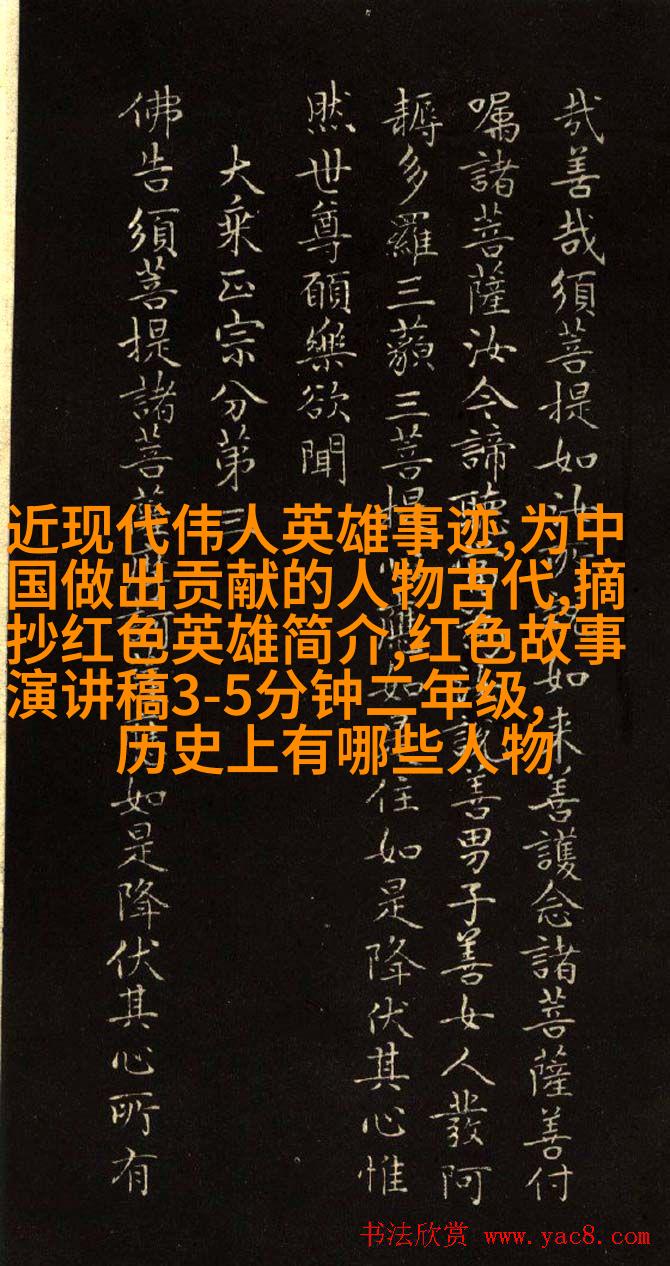 哉善哉須菩提如汝所說如来善護念諸菩薩善付
囑諸菩薩汝今諦聽說善男子善女人發阿
耨多羅三藐三菩提應如住如是降伏其心惟
然世尊願樂欲聞
大乘正宗分第三
佛告須菩提諸菩如是降伏其心所有
近现代伟人英雄事迹,为中
国做出贡献的人物古代,摘
抄红色英雄简介,红色故事
演讲稿3-5分钟二年级,
历史上有哪些人物
书法欣赏 www.yac8.com